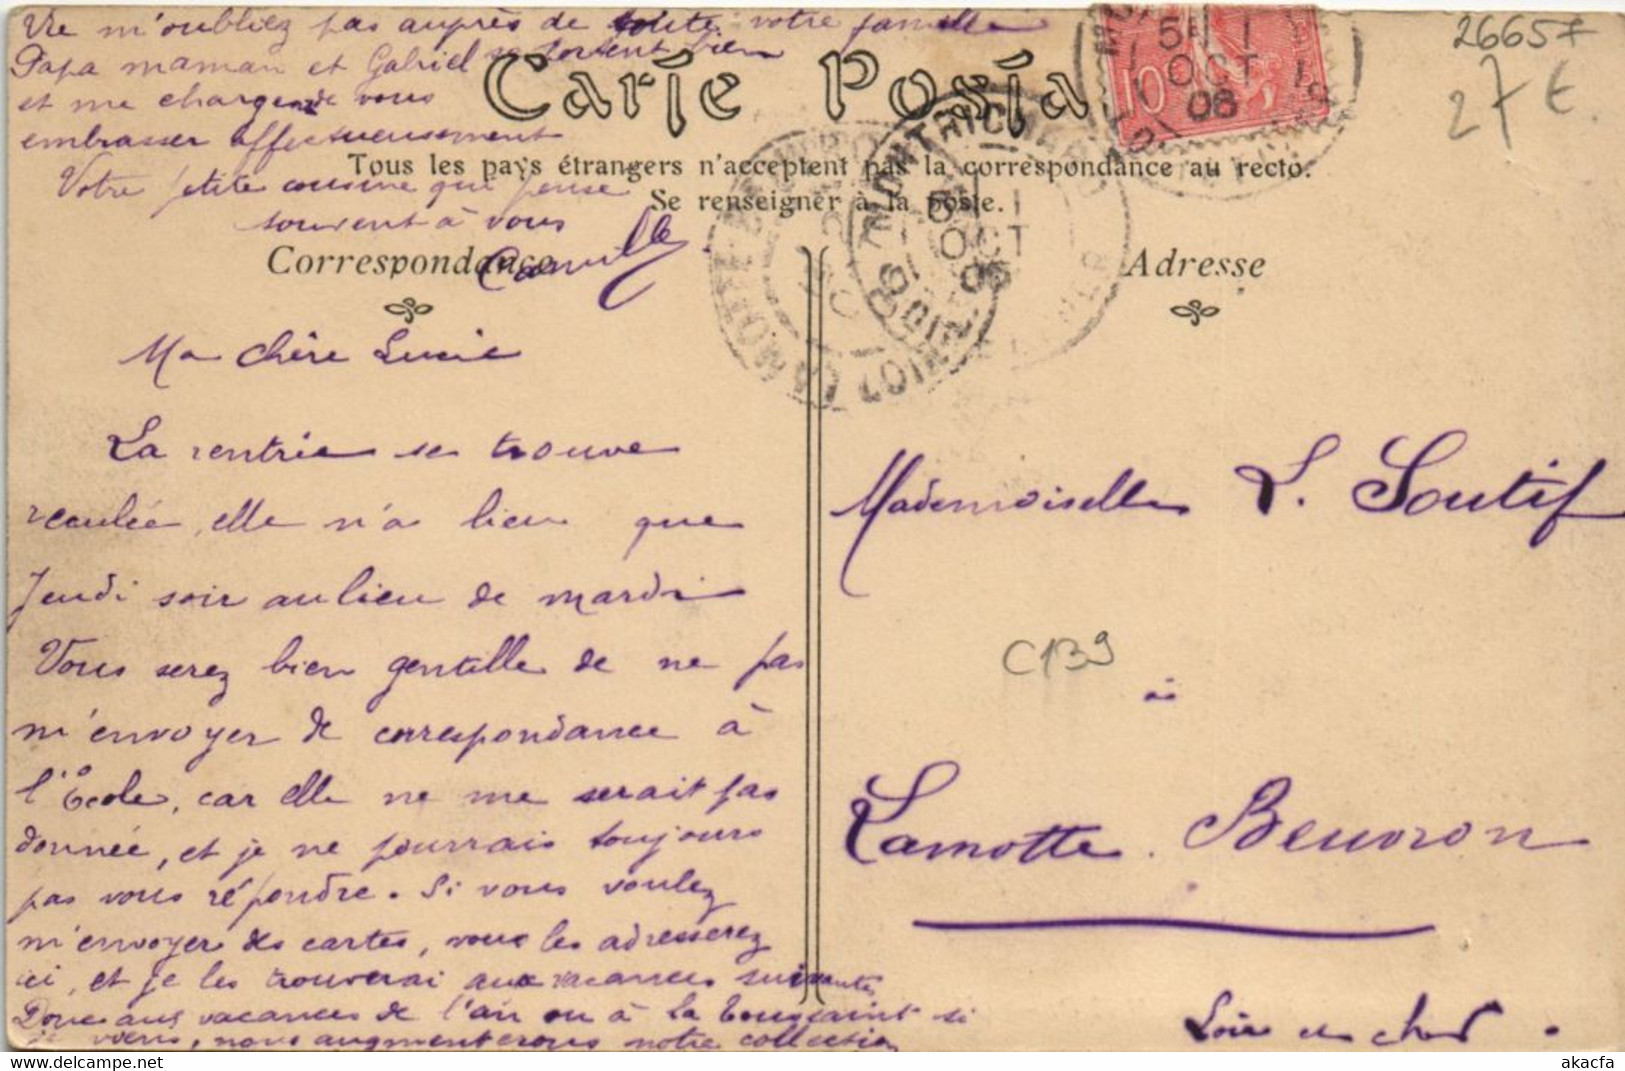 Carte Posta
Tous les pays étrangers n'acceptent pas la correspondance au recto.
Se renseigner à la poste.
Correspondance
Adresse
Ma chère Lucie
La rentrée se trouve
reculée, elle n'a lieu que
Jeudi soir au lieu de mardi
Vous serez bien gentille de ne pas
m'envoyer de correspondance à
l'École, car elle ne me serait pas
donnée, et je ne pourrais toujours
pas vous répondre. Si vous voulez
m'envoyer des cartes, vous les adresserez
ici, et je les trouverai aux vacances suivantes
Donc aux vacances de l'an ou à la Toussaint si
je viens, nous augmenterons notre collection
Ne m'oubliez pas auprès de toute votre famille
Papa maman et Gabriel se portent bien
et me charge de vous
embrasser affectueusement
Votre petite cousine que pense
souvent à vous
Camille
Mademoiselle L. Soutif
à
Lamotte. Beuvron
Loir et cher.
10
5H 1
OCT
08
MONTRICHARD
5H 1
OCT
08
LOIR
26657
27 €
C139
akacfa